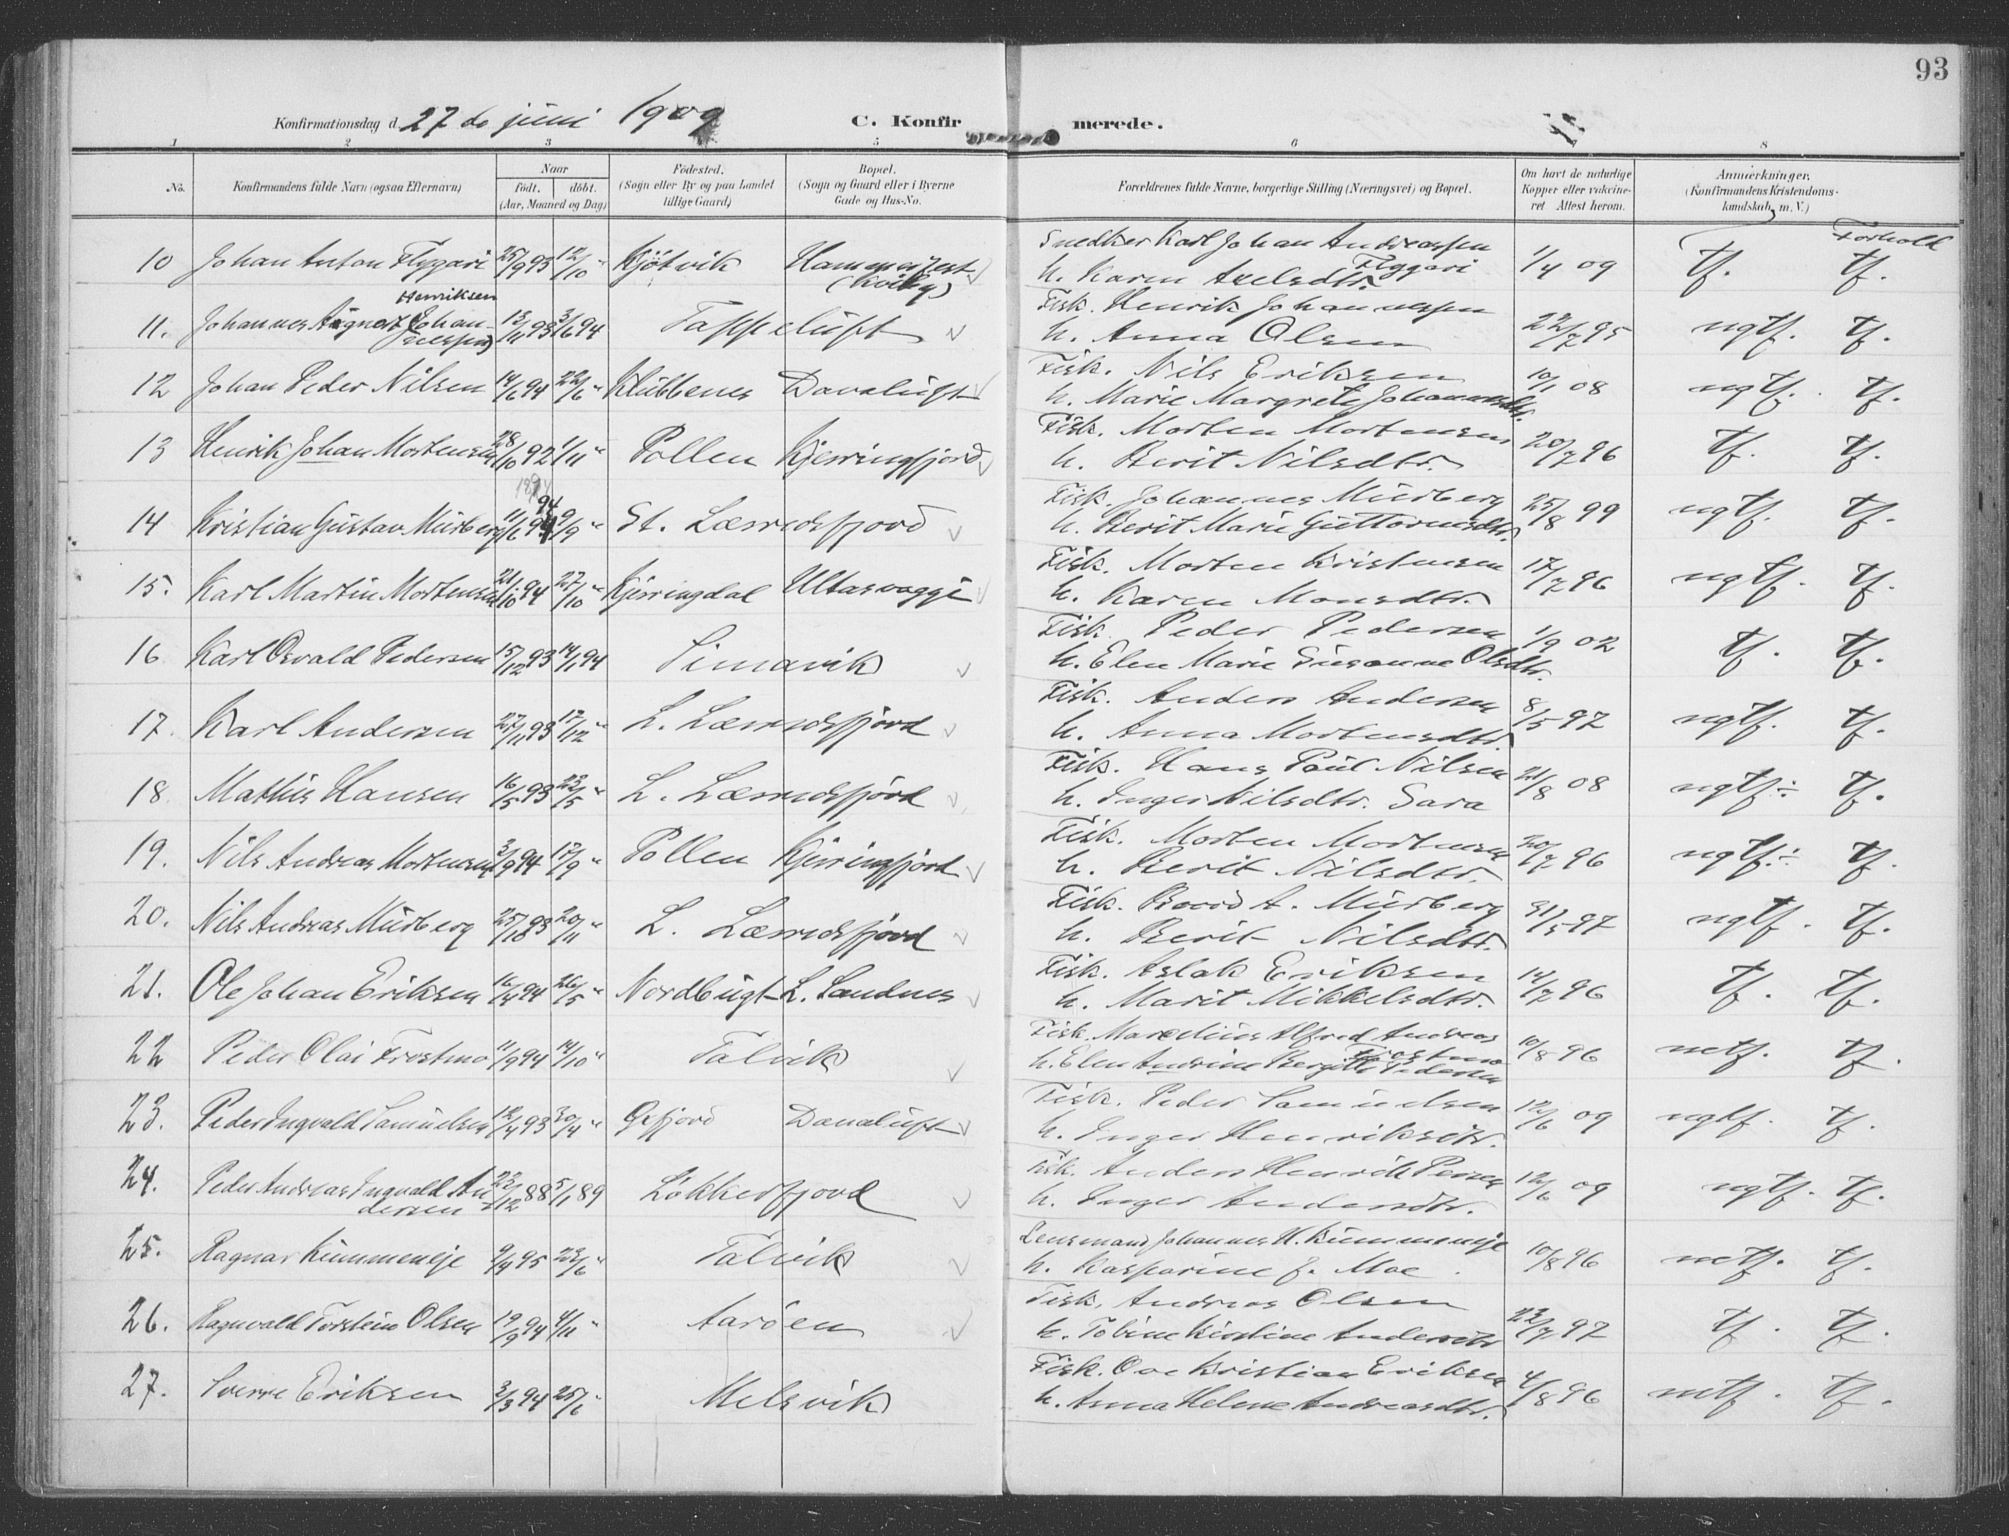 93
Konfirmationsdag d. 27 de juni 1909 C. Konfirmerede.
1 2 3 5 6 8
No. Konfirmandens fulde Navn (ogsaa Efternavn) Naar født. døbt. (Aar, Maaned og Dag) Fødested. (Sogn eller By og paa Landet tillige Gaard) Bopæl. (Sogn og Gaard eller i Byerne Gade og Hus-No. Forældrenes fulde Navne, borgerlige Stilling (Næringsvei) og Bopæl. Om havt de naturlige Kopper eller vakcineret Attest herom. Anmærkninger. (Konfirmandens Kristendomskundskab m. V.)
Forhold
10 Johan Anton Flygari 25/9 93 12/10 " Kjøtvik Hammerfest (Kviby) Snedker Karl Johan Andreassen Flygari
h. Karen Axelsdtr. 1/4 09 tf. tf.
11. Johannes August Johannessen Henriksen 13/11 93 3/6 94 Tappeluft Fisk. Henrik Johannessen
h. Anna Olsen 22/7 95 ngtf. tf.
12 Johan Peder Nilsen 14/6 94 22/6 " Klubbenes Davaluft Fisk. Nils Eriksen
h. Marie Margrete Johannesdtr. 10/1 08 ngtf. tf.
13 Henrik Johan Mortensen 28/10 92 1/11 " Pollen Kjerringfjord Fisk. Morten Mortensen
h. Berit Nilsdtr. 20/7 96 tf. tf.
14 Kristian Gustav Murberg 11/6 94 9/9 " St. Læresfjord Fisk. Johannes Murberg
h. Berit Marie Guttormsdtr. 25/8 99 ngtf. tf.
15. Karl Martin Mortensen 21/10 94 27/10 " Kjerringdal Ultasvaggi Fisk. Morten Kristensen
h. Karen Monsdtr. 17/7 96 ngtf. tf.
16 Karl Osvald Pedersen 15/12 93 14/1 94 Simavik Fisk. Peder Pedersen
h. Elen Marie Susanne Olsdtr. 1/9 02 tf. tf.
17. Karl Andersen 27/11 93 17/12 " L. Læresfjord Fisk. Anders Andersen
h. Anna Mortensdtr. 8/5 97 ngtf. tf.
18. Mathis Hansen 16/5 93 22/5 " L. Læresfjord Fisk. Hans Paul Nilsen
h. Inger Nilsdtr. Sara 21/8 08 ngtf÷ tf.
19. Nils Andreas Mortensen 3/9 94 17/9 " Pollen Kjerringfjord Fisk. Morten Mortensen
h. Berit Nilsdtr. 20/7 96 ngtf÷ tf.
20. Nils Andreas Murberg 25/10 93 20/11 " L. Læresfjord Fisk. Baard A. Murberg
h. Berit Nilsdtr. 31/5 97 ngtf. tf.
21. Ole Johan Eriksen 16/4 94 26/5 " Nordbugt L. Sandnes Fisk. Aslak Eriksen
h. Marit Mikkelsdtr. 14/7 96 tf. tf.
22 Peder Olai Frostmo 11/9 94 14/10 " Talvik Fisk. Marelius Alfred Andreas Frostmo
h. Elen Andrine Bergitte Pedersen 10/8 96 mtf. tf.
23. Peder Ingvald Samuelsen 12/4 93 30/4 " Øxfjord Davaluft Fisk. Peder Samuelsen
h. Inger Henriksdtr. 12/6 09 ngtf. tf.
24. Peder Andreas Ingvald Andersen 22/12 88 5/1 89 Løkkerfjord Fisk. Anders Henrik Persen
h. Inger Andersdtr. 12/6 09 ngtf. tf.
25. Ragnar Kummeneje 9/4 95 23/6 " Talvik Lensmand Johannes H. Kummeneje
h. Kasparine J. Moe. 10/8 96 mtf. tf.
26. Ragnvald Torstein Olsen 19/9 94 4/11 " Aarøen Fisk. Andreas Olsen
h. Tobine Kirstine Andersdtr 23/7 97 tf. tf.
27. Sverre Eriksen 3/3 94 25/6 " Melsvik Fisk. Ove Kristian Eriksen
h. Anna Helene Andreasdtr. 4/8 96 mtf. tf.